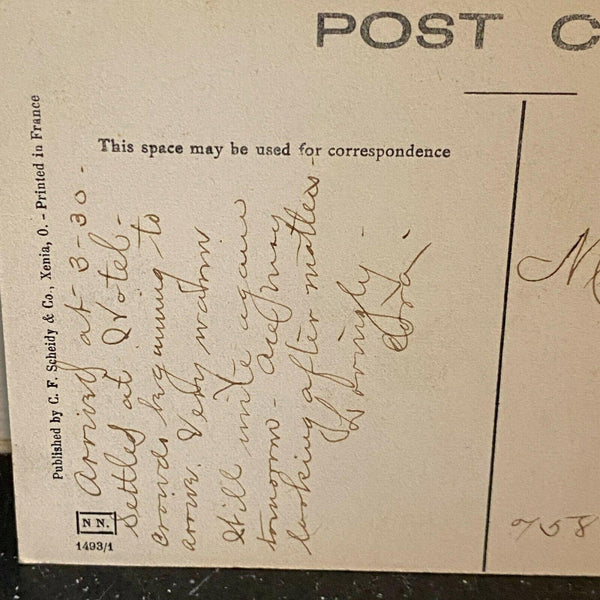 POST C
This space may be used for correspondence
Published by C. F. Scheidy & Co., Xenia, O. - Printed in France
Arrived at 3-30-
Settled at Hotel-
crowds beginning to
arrive. Very warm
Will write again
tomorrow-
looking after matters-
Lovingly-
N N.
1493/1
M
758